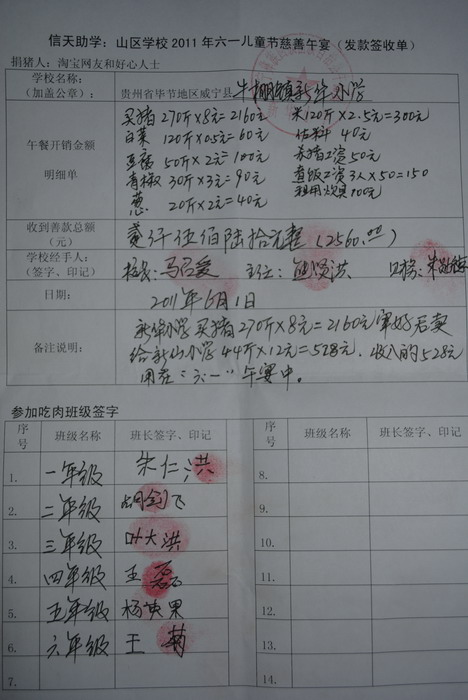 信天助学：山区学校2011年六一儿童节慈善午宴（发款签收单）
捐猪人：淘宝网友和好心人士
学校名称：
（加盖公章）：
贵州省毕节地区威宁县牛棚镇新华小学
午餐开销金额
明细单
买猪270斤×8元=2160元 米120斤×2.5元=300元
白菜 120斤×0.5元=60元 佐料 40元
豆腐 50斤×2元=100元 杀猪工资50元
青椒 30斤×3元=90元 煮饭工资3人×50=150
葱 20斤×2元=40元 租用炊具100元
收到善款总额
（元）
贰仟伍佰陆拾元整（2560.00）
学校经手人：
（签字、印记）
校长：马召爱 主任： 贤洪
日期：
2011年6月1日
备注说明：
新华小学买猪270斤×8元=2160元宰好后卖
给新山小学44斤×12元=528元．收入的528元
用在“六一”午宴中．
参加吃肉班级签字
序号 班级名称 班长签字、印记 序号 班级名称 班长签字、印记
1. 一年级 宋仁洪 8.
2. 二年级 胡剑飞 9.
3. 三年级 叶大洪 10.
4. 四年级 王磊 11.
5. 五年级 杨贞果 12.
6. 六年级 王菊 13.
7. 14.